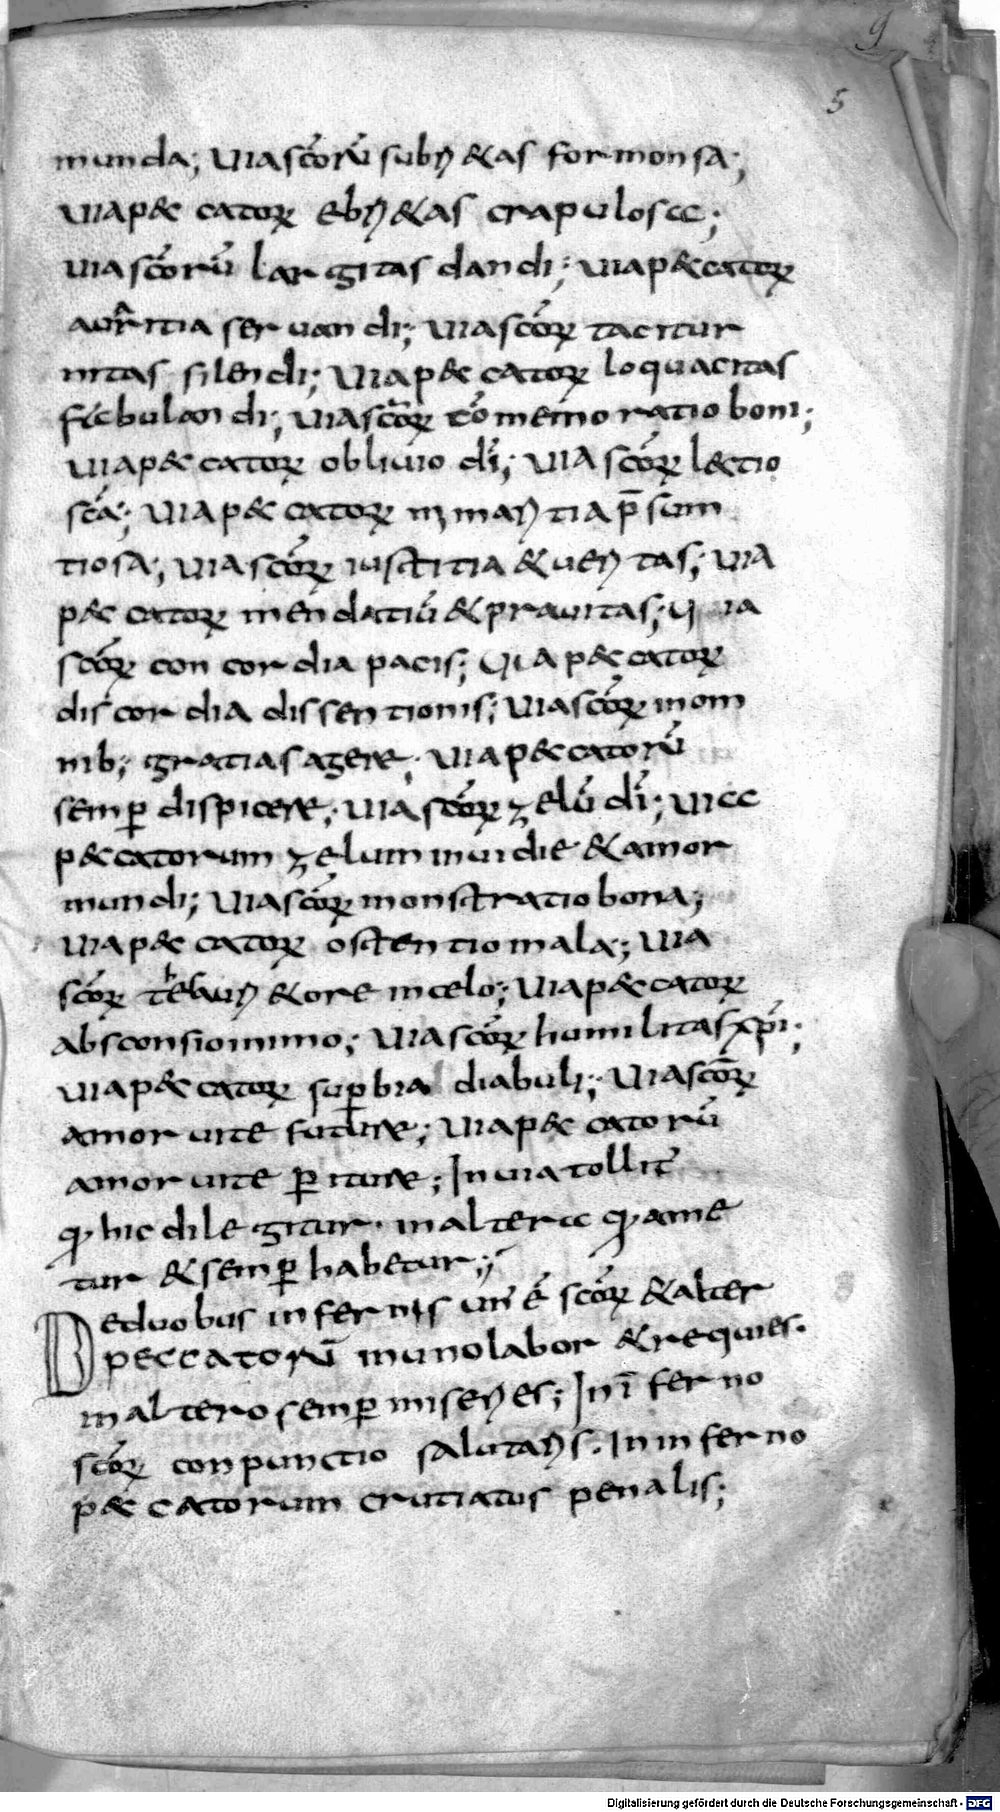 9
5
munda; Uia scōrū subri&as formonsa;
Uia p&catorꝝ ebri&as crapulosa;
uia scōrū largitas dandi; uia p&catorꝝ
auaritia seruandi; uia scōrꝝ tacitur
nitas silendi; Uia p&catorꝝ loquacitas
fabulandi; uia scōrꝝ cōmemoratio boni;
uia p&catorꝝ obliuio dī; uia scōrꝝ lectio
scā; uia p&catorꝝ inmanitia p̄sum
tiosa; uia scōrꝝ iustitia & ueritas; uia
p&catorꝝ mendatiū & prauitas; uia
scōrꝝ concordia pacis; Uia p&catorꝝ
discordia dissentionis; Uia scōrꝝ in om
nib; gratias agere; uia p&catorū
semꝑ dispicere; uia scōrꝝ zelū dī; uia
p&catorum zelum inuidie & amor
mundi; uia scōrꝝ monstratio bona;
uia p&catorꝝ ostentio mala; uia
scōrꝝ & ore in celo; uia p&catorꝝ
absconsio in imo; Uia scōrꝝ humilitas xp̄i;
uia p&catorꝝ suꝑbia diabuli; Uia scōrꝝ
amor uite future; Uia p&catorū
amor uite ꝑiture; In uia tollit̄
qđ hic diligitur. in altera qđ ame
tur & semꝑ habetur;
De duobus infernis un ē scōrꝝ & alter
peccatorū in uno labor & requies.
in altero semꝑ miseries; In īferno
scōrꝝ conpunctio salutaris. In inferno
p&catorum crutiatus penalis;
Digitalisierung gefördert durch die Deutsche Forschungsgemeinschaft - DFG